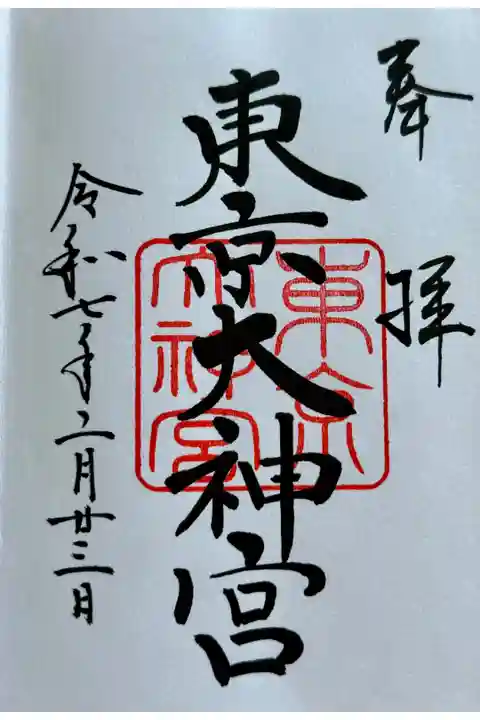 奉拝
東京大神宮
東京
大神宮
令和七年二月廿三日